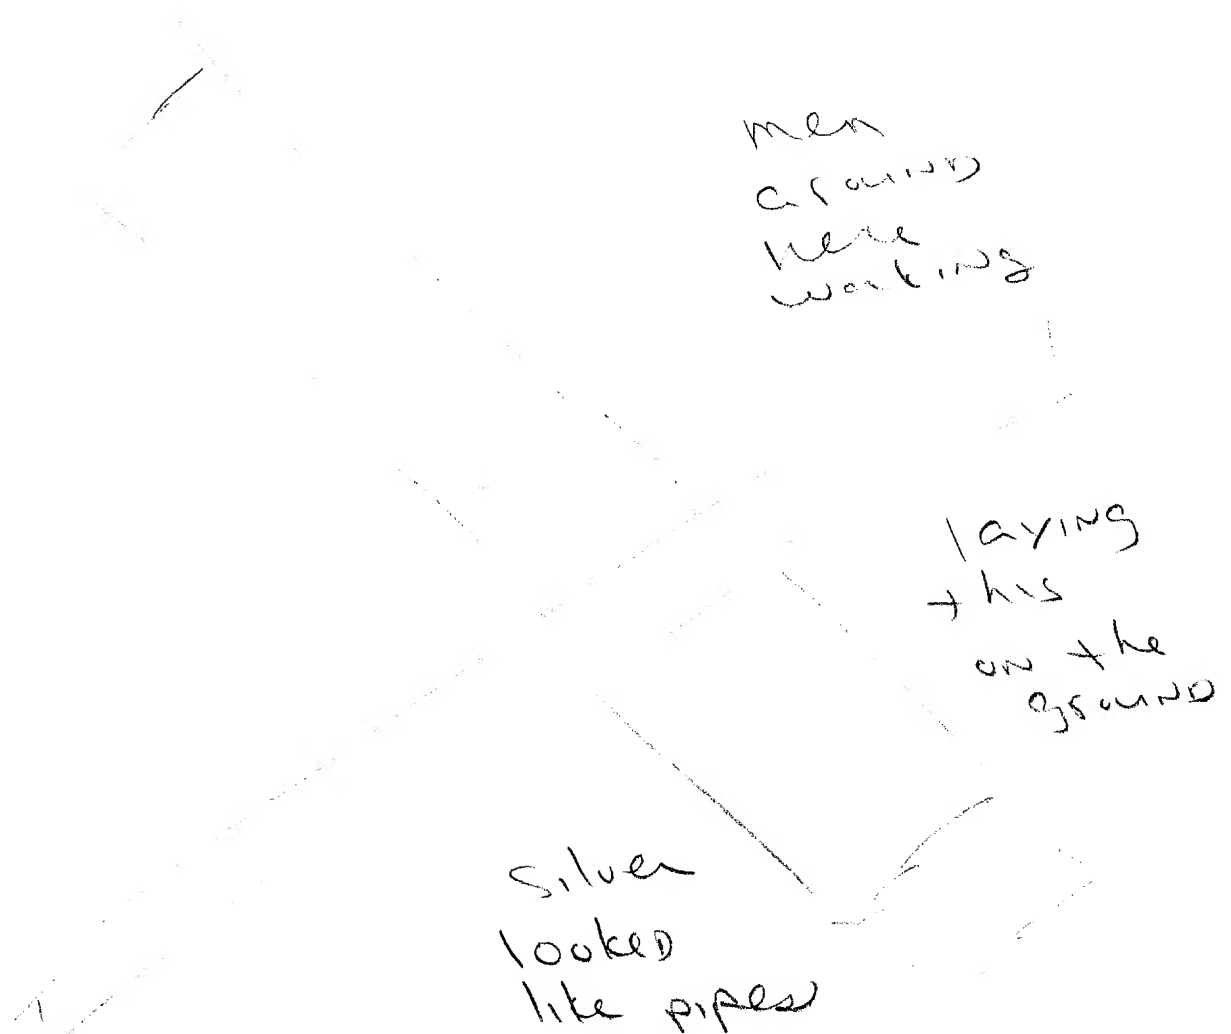 men
around
here
working
laying
this
on the
ground
Silver
looked
like pipes